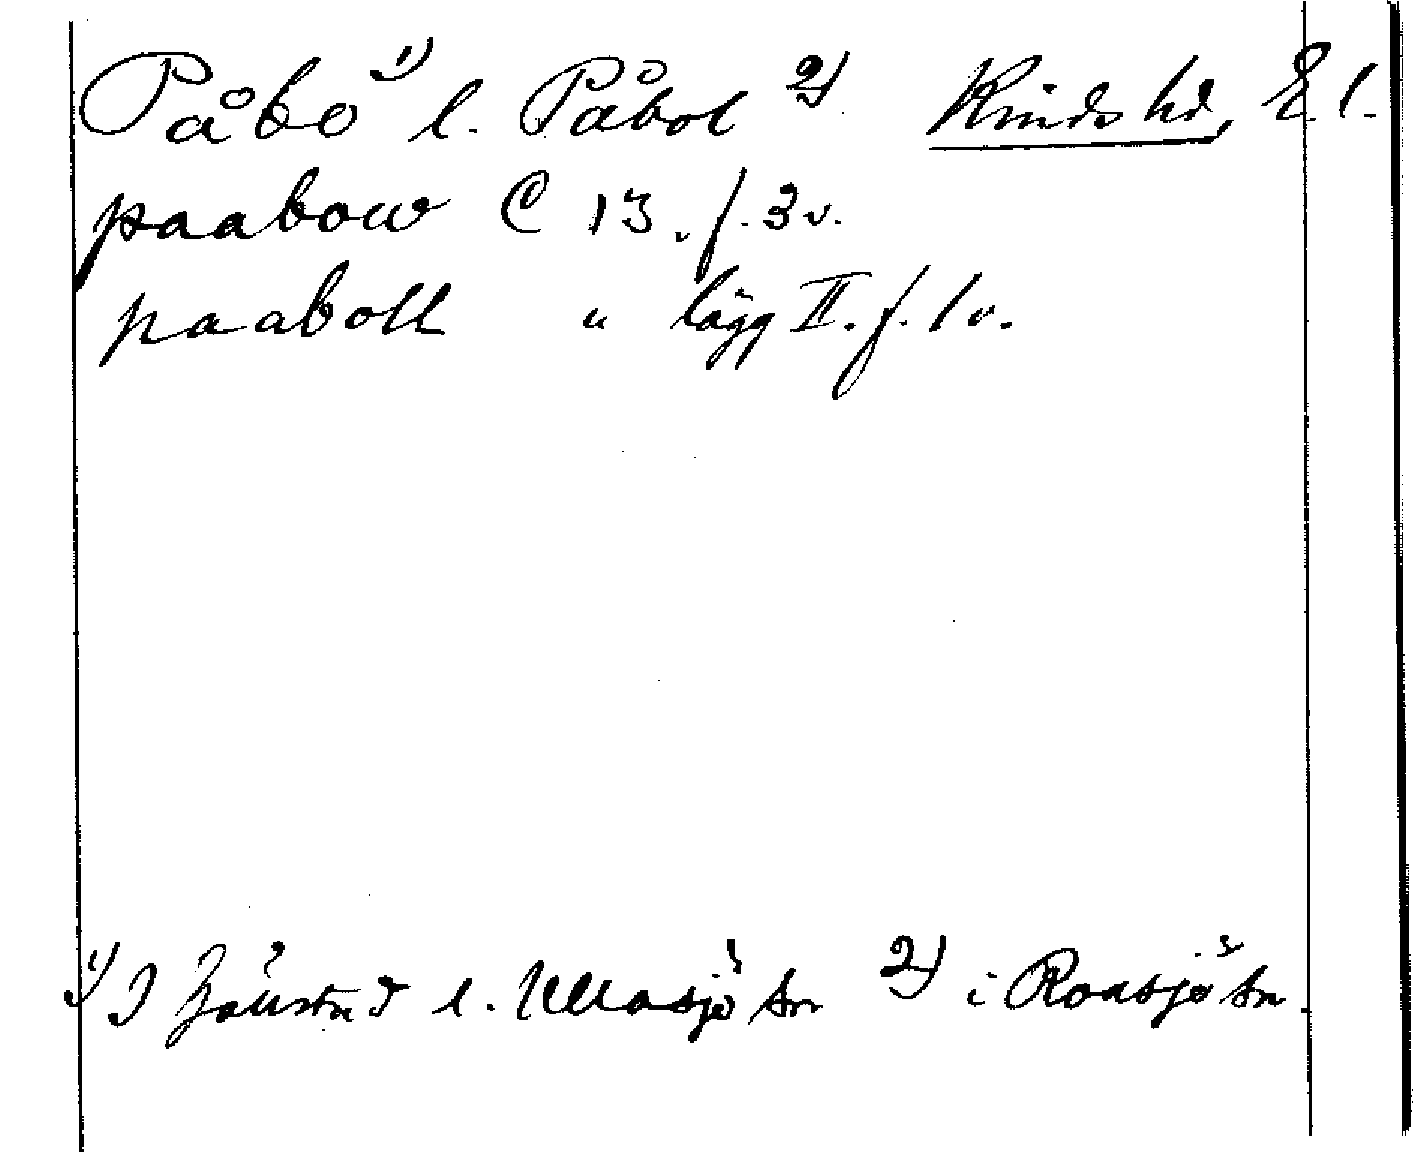 Påbo 1) l. Påbol 2) Kinds hd, E. l.
paabow C 13, f. 3 v.
paaboll " lägg II. f. 1 v.
1) I l. Ullasjö sn 2) i Roasjö sn